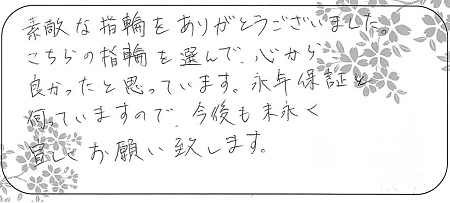 素敵な指輪をありがとうございました。
こちらの指輪を選んで、心から
良かったと思っています。永年保証と
伺っていますので、今後も末永く
宜しくお願い致します。